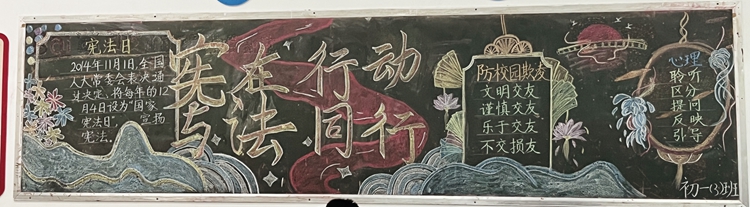 宪法日
2014年11月1日,全国
人大常委会表决通
过决定,将每年的12
月4日设为"国家
宪法日"。宣扬
宪法。
宪在行动
与法同行
防校园欺凌
文明交友
谨慎交友
乐于交友
不交损友
心理
聆听
区分
提问
反映
引导
初一(3)班